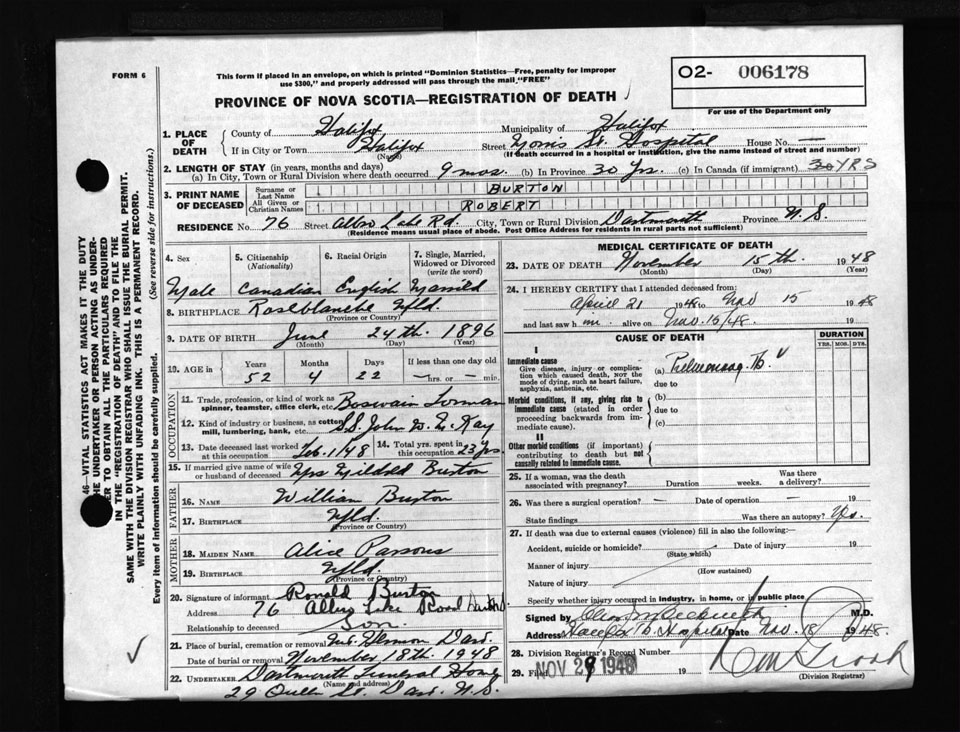 FORM 6
This form if placed in an envelope, on which is printed "Dominion Statistics—Free, penalty for improper
use $300," and properly addressed will pass through the mail "FREE"
O2- 006178
For use of the Department only
PROVINCE OF NOVA SCOTIA—REGISTRATION OF DEATH
1. PLACE OF DEATH
County of Halifax Municipality of Halifax
If in City or Town Halifax Street Hospital House No. —
(Name) (If death occurred in a hospital or institution, give the name instead of street and number)
2. LENGTH OF STAY (in years, months and days)
(a) In City, Town or Rural Division where death occurred 9 mos. (b) In Province 30 Yrs. (c) In Canada (if immigrant) 30 YRS
3. PRINT NAME OF DECEASED
Surname or Last Name BURTON
All Given or Christian Names ROBERT
RESIDENCE No. 76 Street Albro Lake Rd. City, Town or Rural Division Dartmouth Province N.S.
(Residence means usual place of abode. Post Office Address for residents in rural parts not sufficient)
4. Sex
5. Citizenship (Nationality)
6. Racial Origin
7. Single, Married, Widowed or Divorced (write the word)
Male Canadian English Married
8. BIRTHPLACE Roseblanche Nfld.
(Province or Country)
9. DATE OF BIRTH June 24th. 1896
(Month) (Day) (Year)
10. AGE in Years Months Days If less than one day old
52 4 22 — hrs. or — min.
OCCUPATION
11. Trade, profession, or kind of work as spinner, teamster, office clerk, etc. Boswain
12. Kind of industry or business, as cotton mill, lumbering, bank, etc. S.S. John Kay
13. Date deceased last worked at this occupation Feb. 1/48 14. Total yrs. spent in this occupation 23 Yrs
15. If married give name of wife or husband of deceased Mrs Burton
FATHER
16. NAME William Burton
17. BIRTHPLACE Nfld.
(Province or Country)
MOTHER
18. MAIDEN NAME Alice Parsons
19. BIRTHPLACE Nfld.
(Province or Country)
20. Signature of informant Ronald Burton
Address 76 Lake Road
Relationship to deceased Son.
21. Place of burial, cremation or removal Mt. Hermon Dart.
Date of burial or removal November 18th. 1948
22. UNDERTAKER Dartmouth Funeral Home
(Name and address)
29 Queen St. Dart. N.S.
MEDICAL CERTIFICATE OF DEATH
23. DATE OF DEATH November 15th. 1948
(Month) (Day) (Year)
24. I HEREBY CERTIFY that I attended deceased from:
April 21 1948 to Nov 15 1948
and last saw h im. alive on Nov. 15/48. 19
CAUSE OF DEATH DURATION
YRS. MOS. DYS.
I
Immediate cause
Give disease, injury or complication which caused death, NOT the mode of dying, such as heart failure, asphyxia, asthenia, etc.
(a) Tb.
due to
Morbid conditions, if any, giving rise to immediate cause (stated in order proceeding backwards from immediate cause).
(b)
due to
(c)
II
Other morbid conditions (if important) contributing to death but not causally related to immediate cause.
25. If a woman, was the death associated with pregnancy? Duration weeks. Was there a delivery?
26. Was there a surgical operation? — Date of operation — 19
State findings Was there an autopsy? Yes.
27. If death was due to external causes (violence) fill in also the following:—
Accident, suicide or homicide? Date of injury 19
(State which)
Manner of injury
(How sustained)
Nature of injury
Specify whether injury occurred in industry, in home, or in public place
Signed by M.D.
Address Halifax Tb. Hospital Date Nov. 18 1948.
28. Division Registrar's Record Number
29. Filed NOV 29 1948 19
(Division Registrar)
46—VITAL STATISTICS ACT MAKES IT THE DUTY
THE UNDERTAKER OR PERSON ACTING AS UNDER-
ER TO OBTAIN ALL THE PARTICULARS REQUIRED
IN THE "REGISTRATION OF DEATH" AND TO FILE THE
SAME WITH THE DIVISION REGISTRAR WHO SHALL ISSUE THE BURIAL PERMIT.
WRITE PLAINLY WITH UNFADING INK. THIS IS A PERMANENT RECORD.
Every item of Information should be carefully supplied. (See reverse side for instructions.)